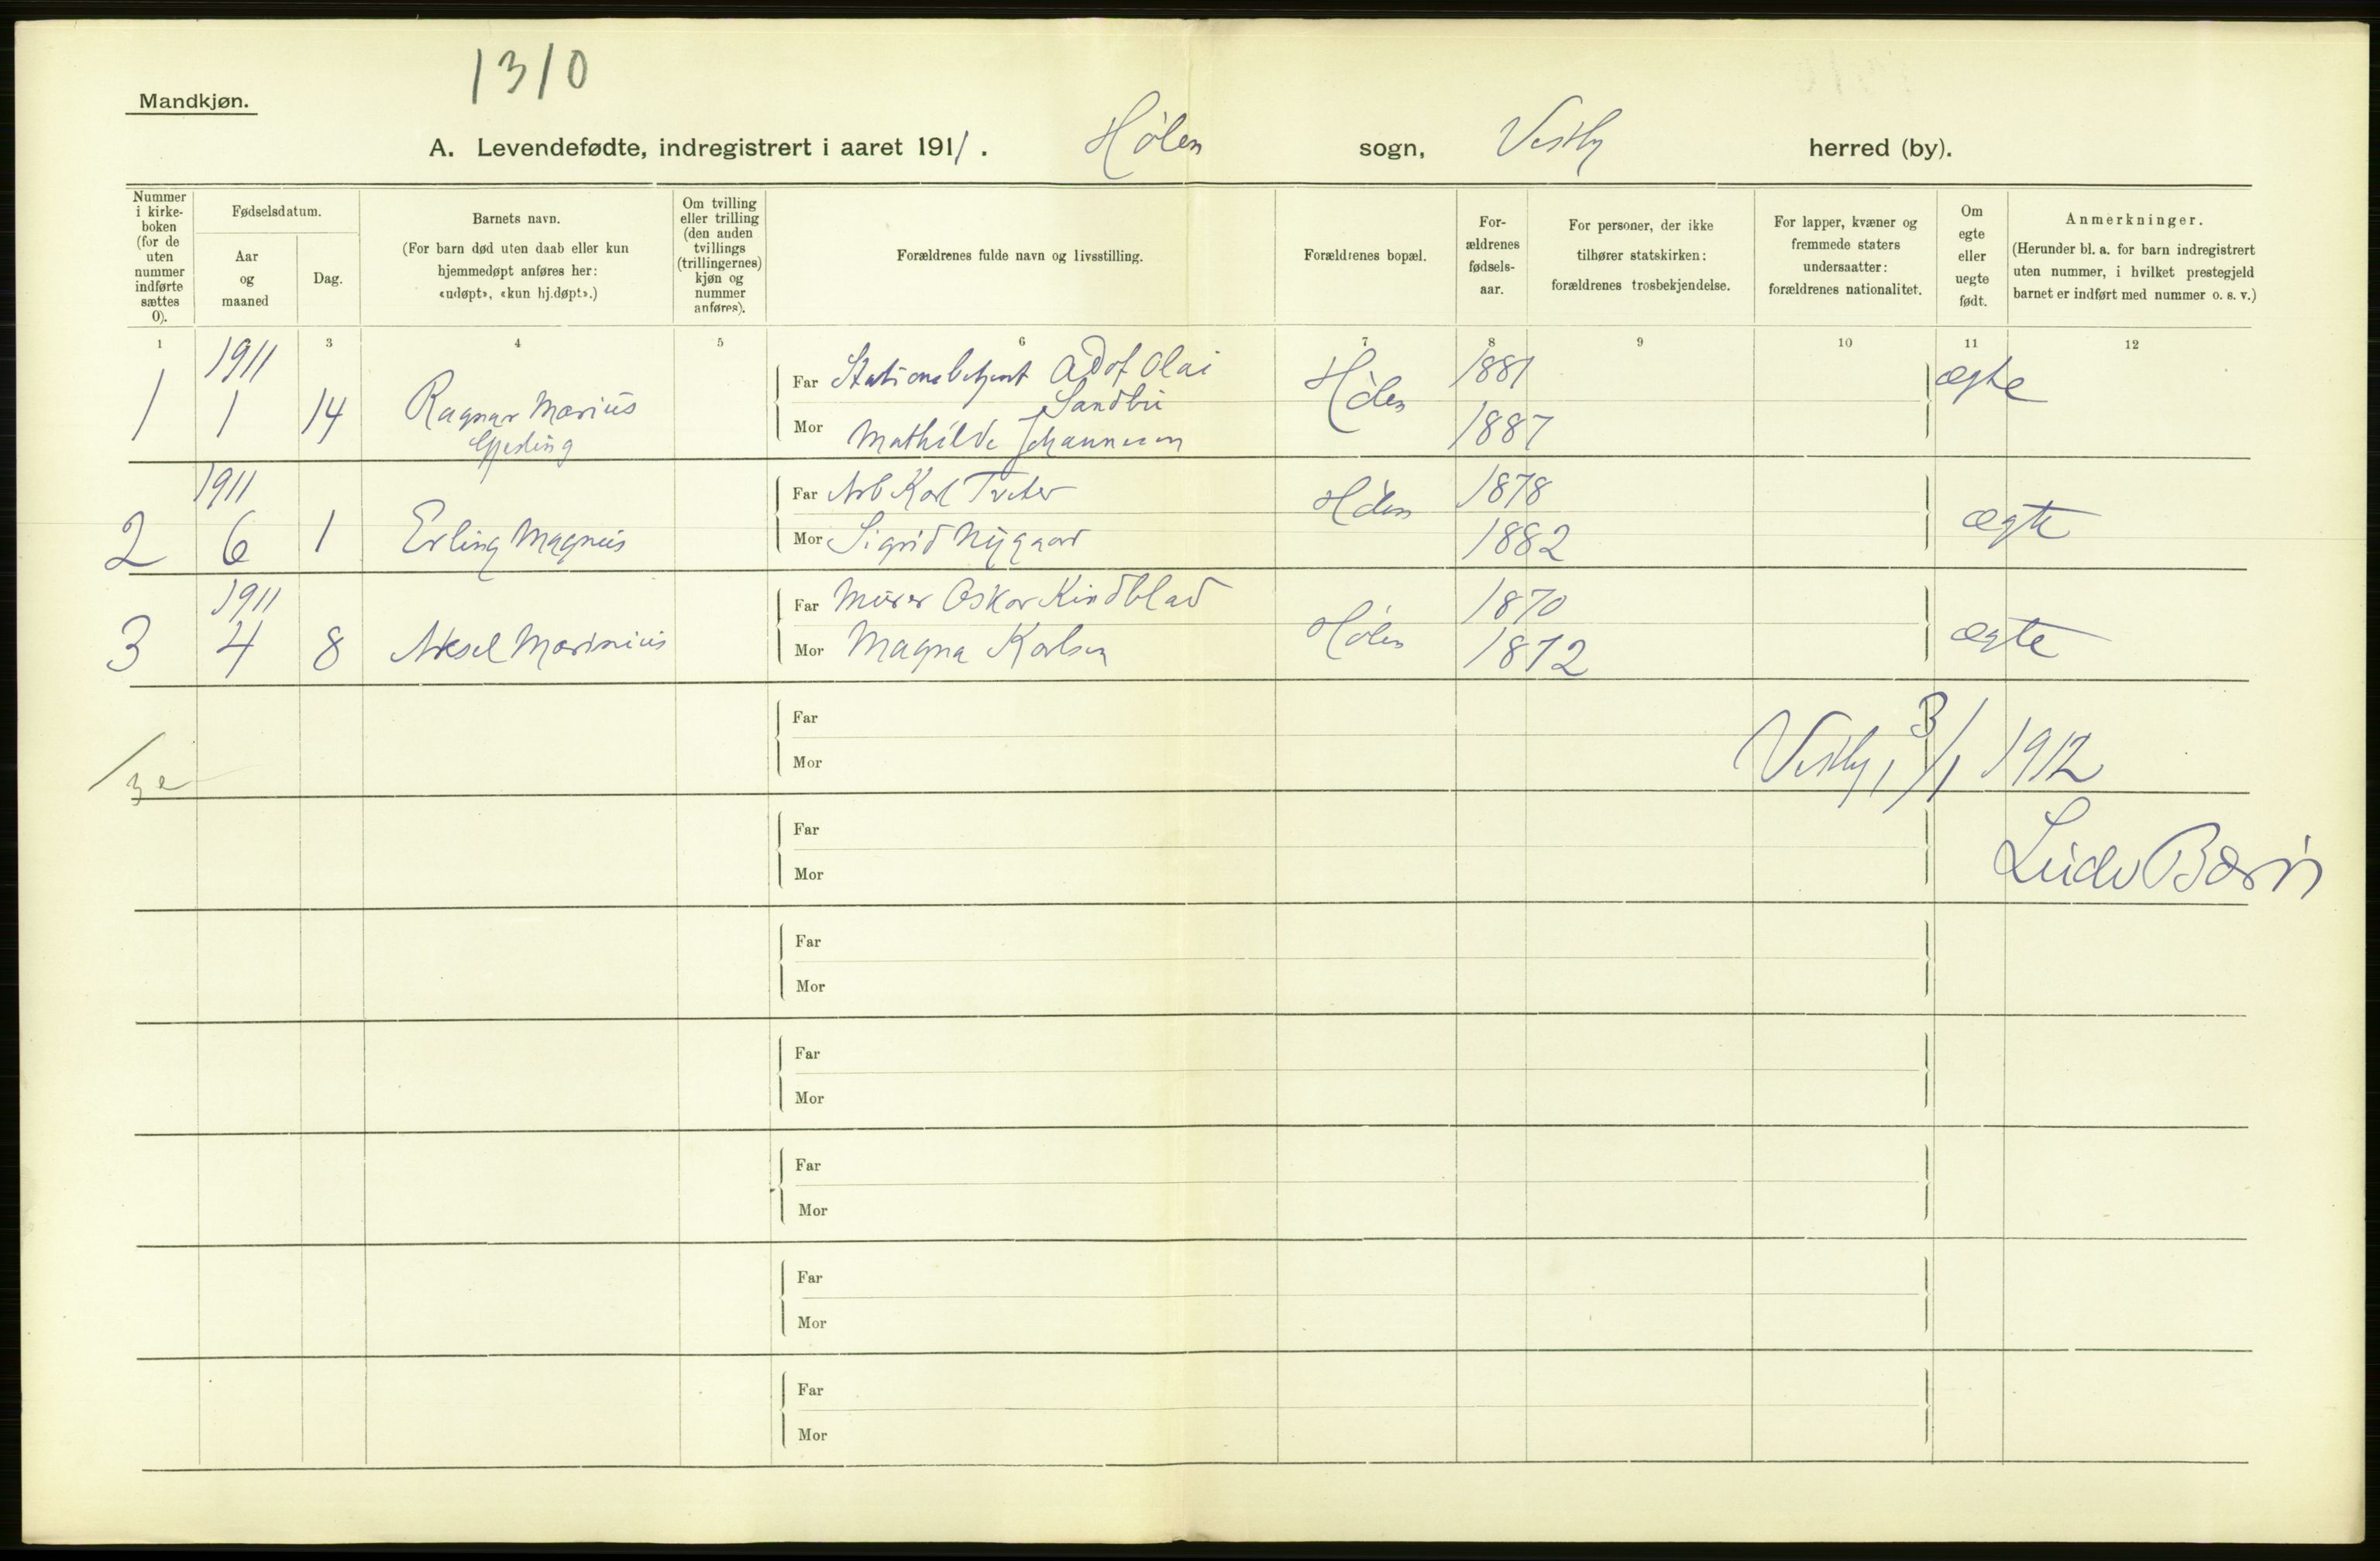 1310
Mandkjøn.
A. Levendefødte, indregistrert i aaret 1911. Hølen sogn, Vestby herred (by).
Nummer i kirkeboken (for de uten nummer indførte sættes 0).
Fødselsdatum.
Aar og maaned
Dag.
Barnets navn.
(For barn død uten daab eller kun hjemmedøpt anføres her: «udøpt», «kun hj.døpt».)
Om tvilling eller trilling (den anden tvillings (trillingernes) kjøn og nummer anføres).
Forældrenes fulde navn og livsstilling.
Forældrenes bopæl.
Forældrenes fødselsaar.
For personer, der ikke tilhører statskirken: forældrenes trosbekjendelse.
For lapper, kvæner og fremmede staters undersaatter: forældrenes nationalitet.
Om egte eller uegte født.
Anmerkninger.
(Herunder bl. a. for barn indregistrert uten nummer, i hvilket prestegjeld barnet er indført med nummer o. s. v.)
1 3 4 5 6 7 8 9 10 11 12
1 1911 1 14 Ragnar Marius
Far Stationsbetjent Adof Olai Sandbu Hølen 1881 ægte
Mor Mathilde Johannesen 1887
2 1911 6 1 Erling Magnus
Far Arb Karl Tveter Hølen 1878 ægte
Mor Sigrid Nygaard 1882
3 1911 4 8 Aksel Marinius
Far Murer Oskar Kindblad Hølen 1870 ægte
Mor Magna Karlsen 1872
Far
Mor
Vestby, 3/1 1912
Far
Mor
Ludv
Far
Mor
Far
Mor
Far
Mor
Far
Mor
Far
Mor